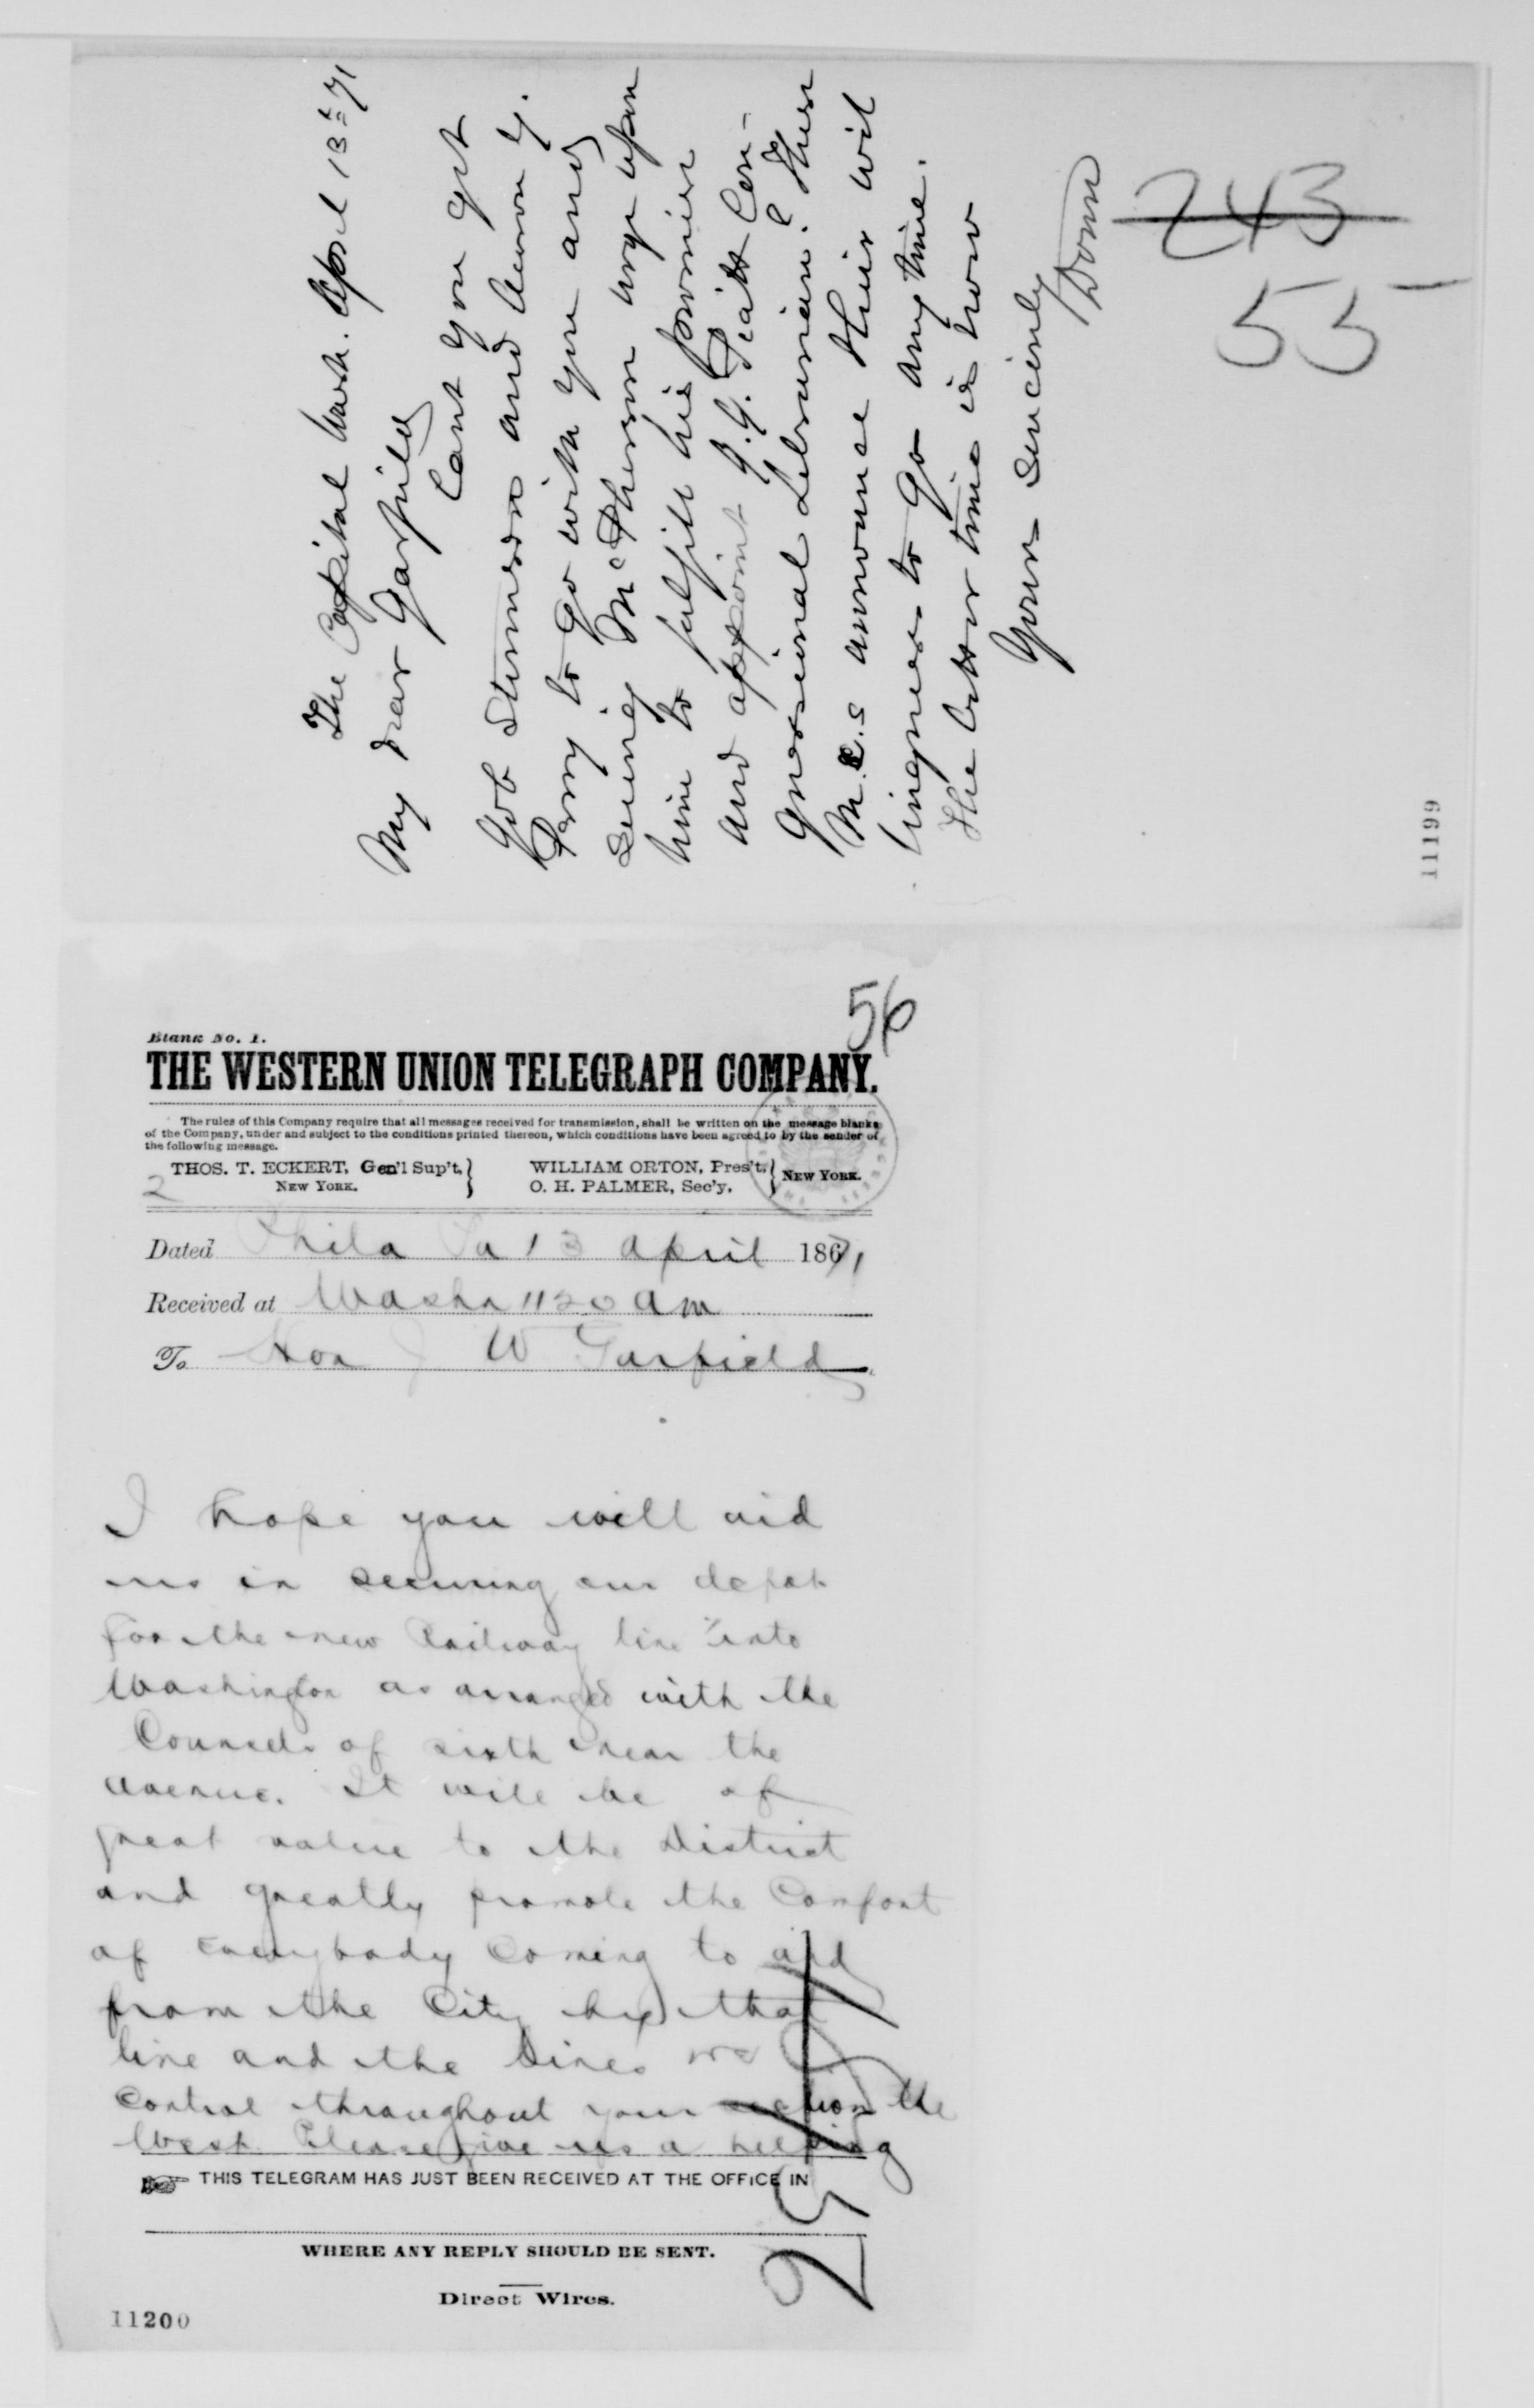 The Capital Wash. April 13th 71
My Dear Garfield
Cant you get
Job Stevenson and Aaron F.
Perry to go with you and
seeing McPherson urge upon
him to fulfill his promise
and appoint J.J. Piatt Con-
gressional Librarian. These
M.C.s announce their wil
lingness to go any time.
The better time is now
Yours Sincerely
Donn
243
55
11199
56
Blank No. 1.
THE WESTERN UNION TELEGRAPH COMPANY.
The rules of this Company require that all messages received for transmission, shall be written on the message blanks
of the Company, under and subject to the conditions printed thereon, which conditions have been agreed to by the sender of
the following message.
THOS. T. ECKERT, Gen'l Sup't, WILLIAM ORTON, Pres't,
NEW YORK. O. H. PALMER, Sec'y, NEW YORK.
2
Dated Phila Pa 13 April 1871
Received at Washn 1120 am
To Hon J W Garfield
I hope you will aid
us in securing our depot
for the new Railway line into
Washington as arranged with the
Councils of sixth near the
avenue. It will be of
great value to the District
and greatly promote the Comfort
of Everybody Coming to and
from the City by that
line and the Lines we
Control throughout your section the
West Please give us a helping
THIS TELEGRAM HAS JUST BEEN RECEIVED AT THE OFFICE IN
WHERE ANY REPLY SHOULD BE SENT.
Direct Wires.
11200